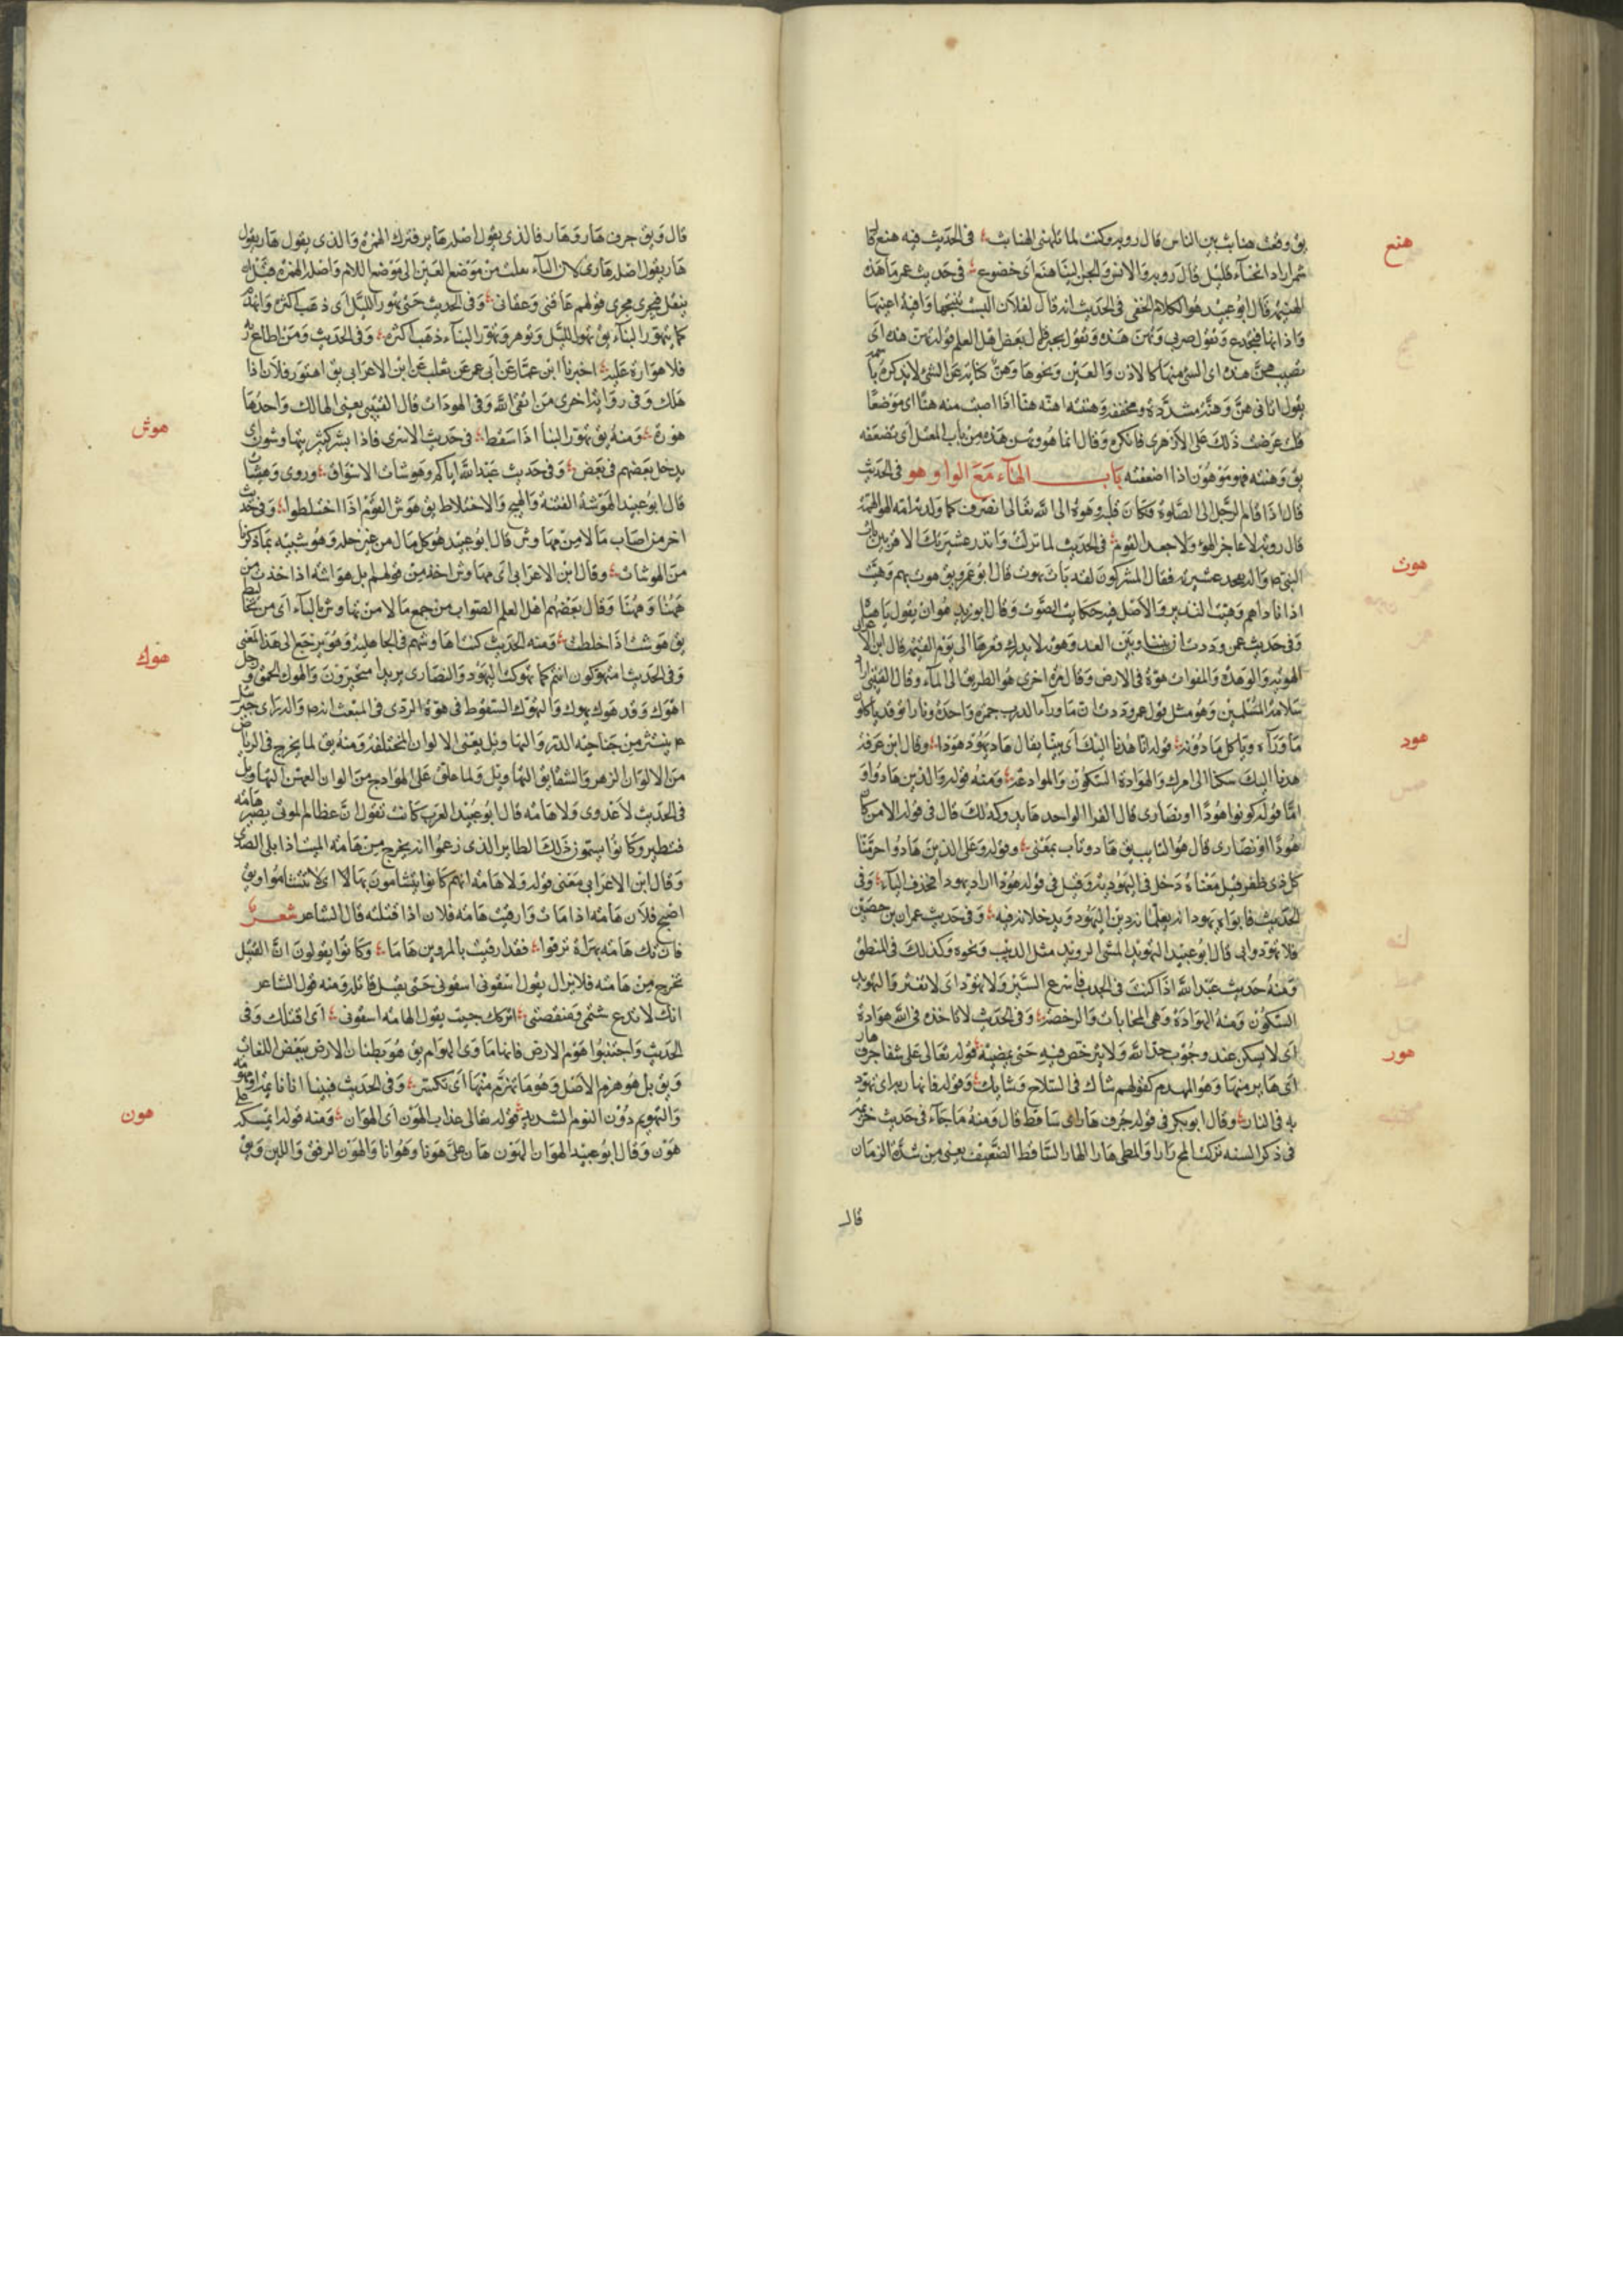 هنع
يق وقعت هنابث بين الناس قال رويه وكنت لما تلهنى الهنابث في الحديث فيه هنع كما
شمر اراد انحناء قليل قال رويه والانس والجن الينا هنع اى خضوع في حديث عمر ما هذه
الهينمه قال ابو عبيد هو الكلام الخفى في الحديث انه قال لفلان الست تنتجها وافيه اعينها
واذانها فتجدع وتقول صربى وتهن هذه وتقول بحيره قال بعض اهل العلم قوله تهن هذه اى
تصيب هن هذه اى الشئ منها كالاذن والعين ونحوها وهن كناية عن الشئ لا يذكره باسمه
يقول اتانى هن وهنة مشددة ومخففة وهننته اهنه هنا اذا اصبت منه هنا اى موضعا
قلت عرضت ذلك على الازهرى فانكره وقال انما هو وتهن هذه من باب المعتل اى تضعفه
يق وهنته فهو موهون اذا اضعفته باب الهاء مع الواو هو في الحديث
قال اذا قام الرجل الى الصلوة فكان قلبه وهوه الى الله تعالى انصرف كما ولدته امه الهوء الهمة
قال رويه لا عاجز الهوء ولا جعد القدم في الحديث لما نزلت وانذر عشيرتك الاقربين بات
هوت
النبي يفخذ عشيرته فقال المشركون لقد بات يهوت قال ابو عمرو يق هوت بهم وهيت
اذا ناداهم وهيت النذير والاصل فيه حكاية الصوت وقال ابو زيد هو ان يقول ياه ياه
وفى حديث عثمن وددت ان بيننا وبين العدو هوتة لا يدرك قعرها الى يوم القيمة قال ابن الاعرابى
الهوتة والوهدة والمفوات هوة في الارض وقال مرة اخرى هو الطريق الى الماء وقال القتيبى اراد
سلامة المسلمين وهو مثل قول عمر وددت ان ما وراء الدرب جمرة واحدة ونارا توقد ياكلون
هود
ما وراه وياكل ما دونه قوله انا هدنا اليك اى تبنا يقال هاد يهود هودا وقال ابن عرفه
هدنا اليك سكنا الى امرك والهوادة السكون والموادعة ومنه قوله والذين هادوا و
اما قوله كونوا هودا او نصارى قال الفرا الواحد هايد وكذلك قال في قوله الا من كان
هودا او نصارى قال هو التايب يق هاد وتاب بمعنى وقوله وعلى الذين هادوا حرمنا
كل ذى ظفر قيل معناه دخل في اليهودية وقيل في قوله هودا اراد يهودا فحذف الياء وفى
الحديث فابواه يهودانه يعلمانه دين اليهود ويدخلانه فيه وفى حديث عمران بن حصين
فلا تهودوا بى قال ابو عبيد التهويد المشى الرويد مثل الدبيب ونحوه وكذلك في المنطق
ومنه حديث عبد الله اذا كنت في الجدب فاسرع السير ولا تهود اى لا تفتر والتهويد
السكون ومنه الهوادة وهى المحابات والرخصة وفى الحديث لا تاخذه في الله هوادة
هور
اى لا يسكن عند وجوب حد الله ولا يرخص فيه حتى يمضيه قوله تعالى على شفا جرف هار
اى هاير منها وهو المهدم كقولهم شاك في السلاح وشايك وقوله فانهار به اى تهود
به في النار وقال ابو بكر في قوله جرف هار اى ساقط قال ومنه ما جاء في حديث خزيمه
في ذكر السنه تركت المخ رارا والمطى هارا الهار الساقط الضعيف يعنى من شدة الزمان
قال
قال ويق جرف هار وهار فالذى يقول اصله هاير فترك الهمزة والذى يقول هار يقول
هار يقول اصله هارى لان الياء نقلت من موضع العين الى موضع اللام واصله الهمزة
ينقل فجرى مجرى قولهم عاقنى وعقانى وفى الحديث حتى تهور الليل اى ذهب اكثره وانهدم
كما يتهور البناء يق تهور الليل وتوهر وتهور البناء ذهب اكثره وفى الحديث ومن اطاع ربه
فلا هوارة عليه اخبرنا ابن عمار عن ابى عمر عن ثعلب عن ابن الاعرابى يق اهتور فلان اذا
هلك وفى رواية اخرى من اتقى الله وقى الهورات قال القتيبى يعنى المهالك واحدها
هوش
هورة ومنه يق تهور البنا اذا سقط في حديث الاسرى فاذا بشر كثير يتهاوشون اى
يدخل بعضهم في بعض وفى حديث عبد الله اياكم وهوشات الاسواق وروى وهيشات
قال ابو عبيد الهوشة الفتنة والهيج والاختلاط يق هوش القوم اذا اختلطوا وفى حديث
اخر من اصاب مالا من مهاوش قال ابو عبيد هو كل مال من غير حله وهو شبيه بما ذكرنا
من الهوشات وقال ابن الاعرابى اى مهاوش اخذه من قولهم ابل هواشة اذا اخذت من
ههنا وههنا وقال بعضهم اهل العلم الصواب من جمع مالا من تهاوش بالتاء اى من تخاليط
يق هوشت اذا خلطت ومنه الحديث كنت اهاوشهم في الجاهلية وهو يرجع الى هذا المعنى
هوك
وفى الحديث امتهوكون انتم كما تهوكت اليهود والنصارى يريد امتحيرون والهوك الحمق ورجل
اهوك وقد هوك يهوك والتهوك السقوط في هوة الردى في المبعث انه راى جبرئيل
ينتثر من جناحيه الدر والتهاويل يعنى الالوان المختلفة ومنه يق لما يخرج في الرياض
من الالوان الزهر والشقايق التهاويل ولما علق على الهوادج من الوان العهن التهاويل
في الحديث لا عدوى ولا هامه قال ابو عبيد العرب كانت تقول ان عظام الموتى يصير هامه
فتطير وكانوا يسمون ذلك الطاير الذى زعموا انه يخرج من هامه الميت اذا بلى الصدى
وقال ابن الاعرابى معنى قوله ولا هامه انهم كانوا يتشامون بها لا اى لا تتشاموا ويق
اصبح فلان هامه اذا مات وازقيت هامه فلان اذا قتلته قال الشاعر شعر
فان تك هامه بهراة تزقوا فقد ازقيت بالمروين هاما وكانوا يقولون ان القتيل
تخرج من هامته فلا يزال يقول اسقونى اسقونى حتى يقتل قاتله ومنه قول الشاعر
انك لا تدع شتمى ومنقصتى اتركك حيث يقول الهامه اسقونى اى اقتلك وفى
الحديث واجتنبوا هوم الارض فانها ماوى الهوام يق هو بطنان الارض ببعض اللغات
ويق بل هو هزم الاصل وهو ما تهزم منها اى تكسر وفى الحديث فبينا انا نايمة او مهومة
هون
والتهويم دون النوم الشديد قوله تعالى عذاب الهون اى الهوان ومنه قوله ايمسكه على
هون وقال ابو عبيد الهوان الهون هان على هونا وهوانا والهون الرفق واللين ويق